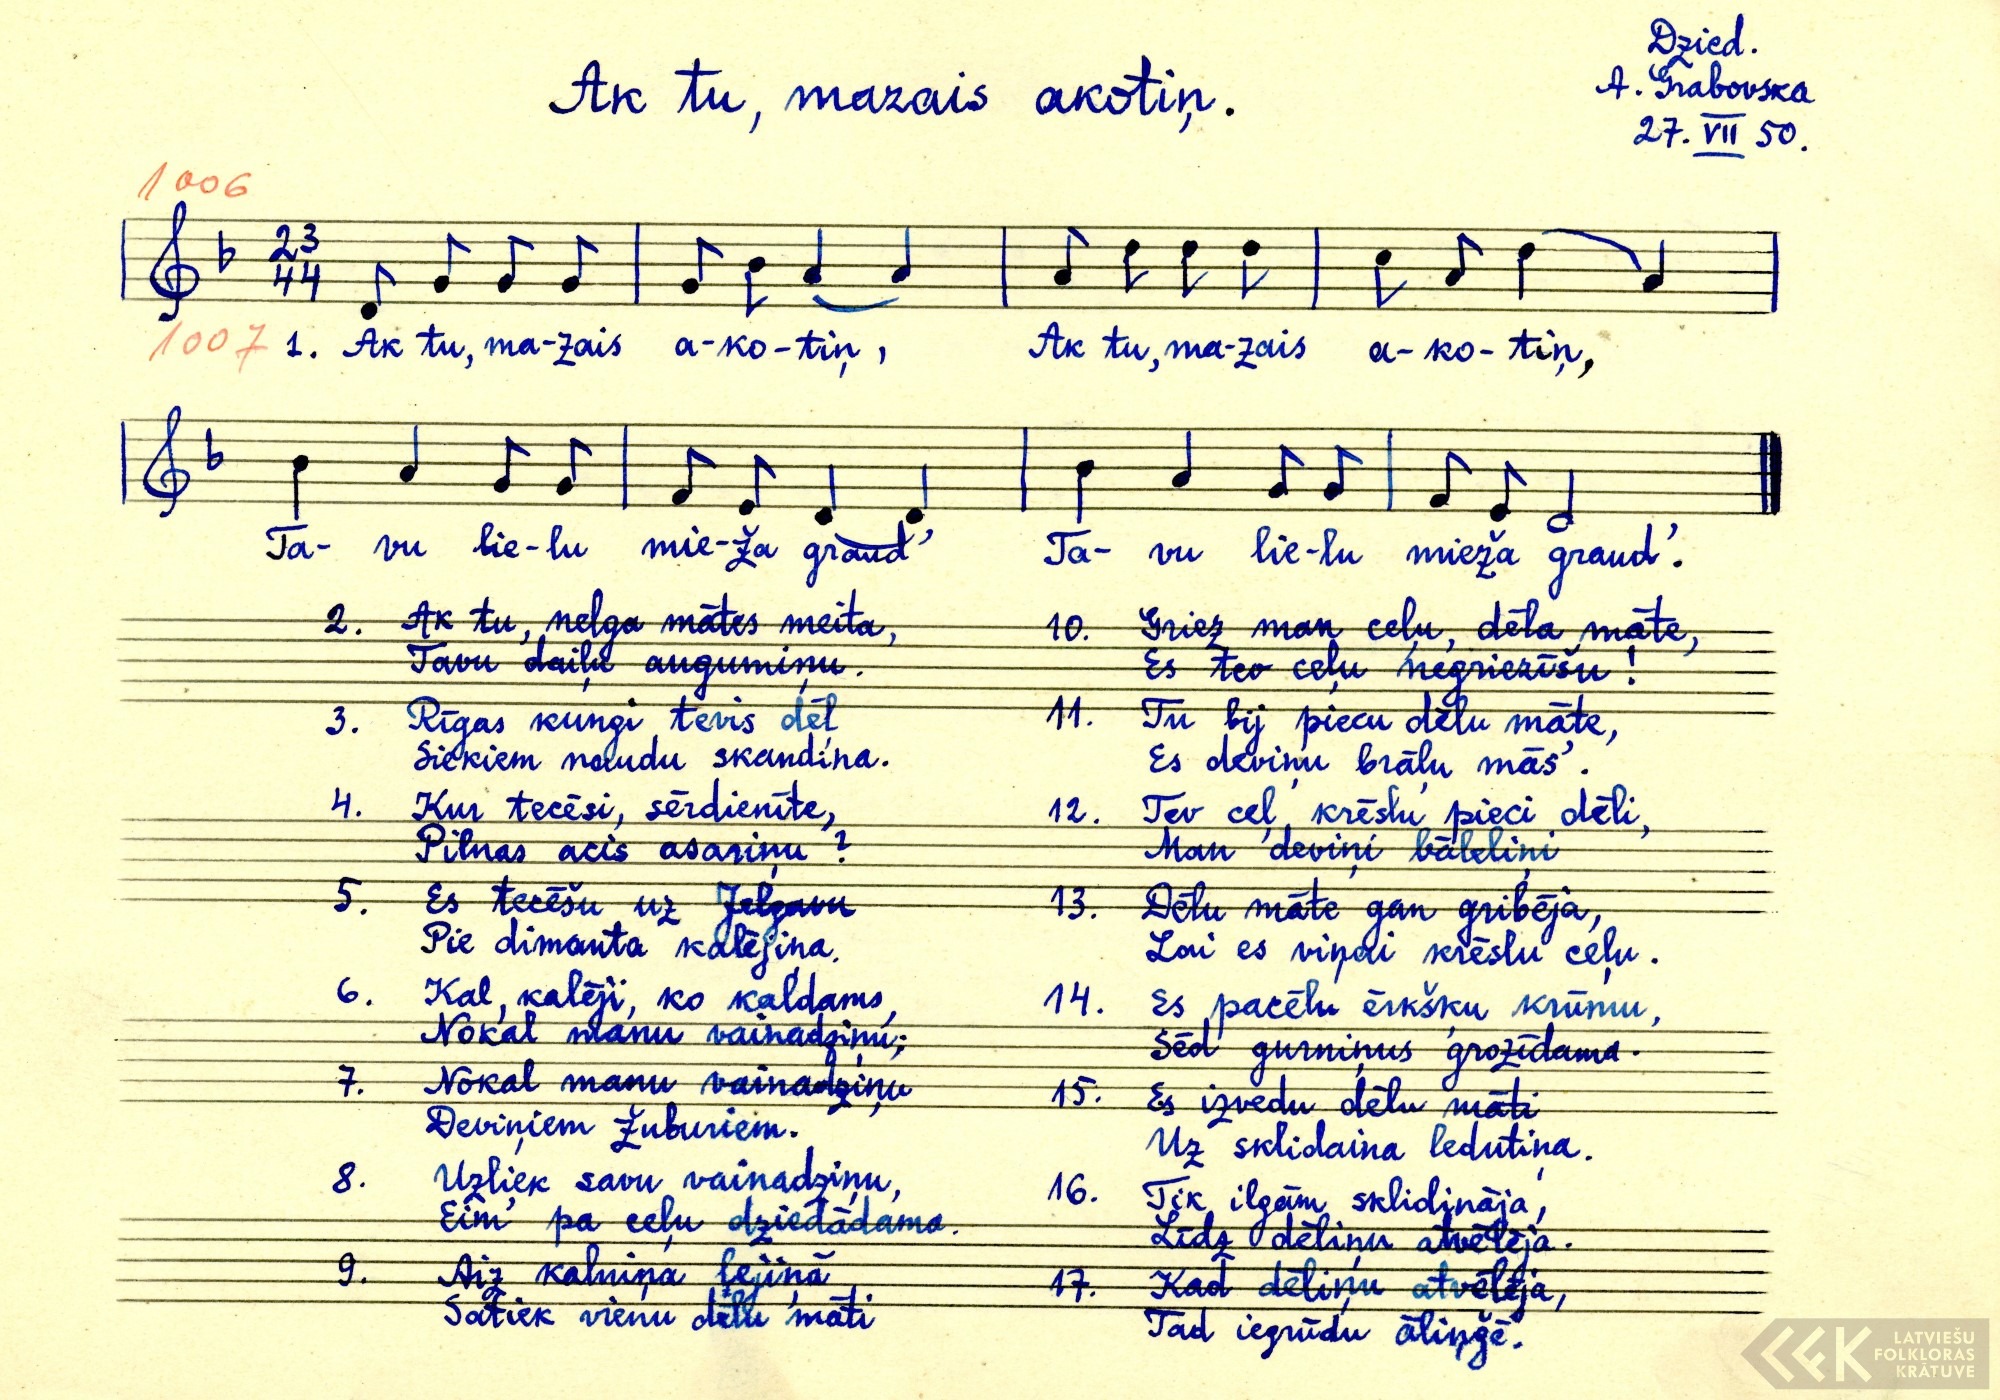 Dzied.
A. Grabovska
27. VII 50.
Ak tu, mazais akotiņ.
1006
2 3
4 4
1007 1. Ak tu, ma-zais a-ko-tiņ, Ak tu, ma-zais a-ko-tiņ,
Ta- vu lie-lu mie-ža graud' Ta- vu lie-lu mieža graud'.
2. Ak tu, nelga mātes meita,
Tavu daiļu augumiņu.
3. Rīgas kungi tevis dēļ
Siekiem naudu skandina.
4. Kur tecēsi, sērdienīte,
Pilnas acis asariņu?
5. Es tecēšu uz Jelgavu
Pie dimanta kalējiņa.
6. Kal, kalēji, ko kaldams,
Nokal manu vainadziņu;
7. Nokal manu vainadziņu
Deviņiem žuburiem.
8. Uzliek savu vainadziņu,
Eim' pa ceļu dziedādama.
9. Aiz kalniņa lejiņā
Satiek vienu dēlu māti
10. Griez man ceļu, dēla māte,
Es tev ceļu negriezīšu!
11. Tu bij piecu dēlu māte,
Es deviņu brāļu mās'.
12. Tev ceļ krēslu pieci dēli,
Man deviņi bāleliņi
13. Dēlu māte gan gribēja,
Lai es viņai krēslu ceļu.
14. Es pacēlu ērkšķu krūmu,
Sēd gurniņus grozīdama.
15. Es izvedu dēlu māti
Uz sklidaina ledutiņa.
16. Tik ilgām sklidināja,
Līdz dēliņu atvēlēja.
17. Kad dēliņu atvēlēja,
Tad iegrūdu āliņģē.
LATVIEŠU
FOLKLORAS
KRĀTUVE